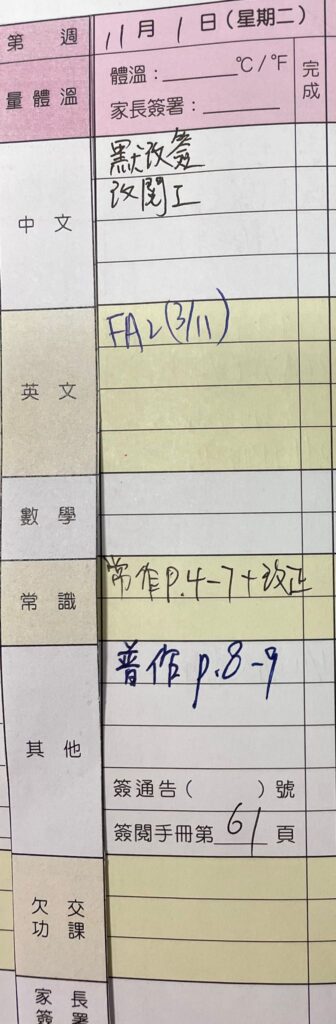 第 週 11月 1日(星期二)
量體溫 體溫:______°C/°F 完成
家長簽署:______
中文 默改簽
改閱工
英文 FA2(3/11)
數學
常識 常作P.4-7+改正
其他 普作p.8-9
簽通告( )號
簽閱手冊第61頁
欠交功課
家長簽署